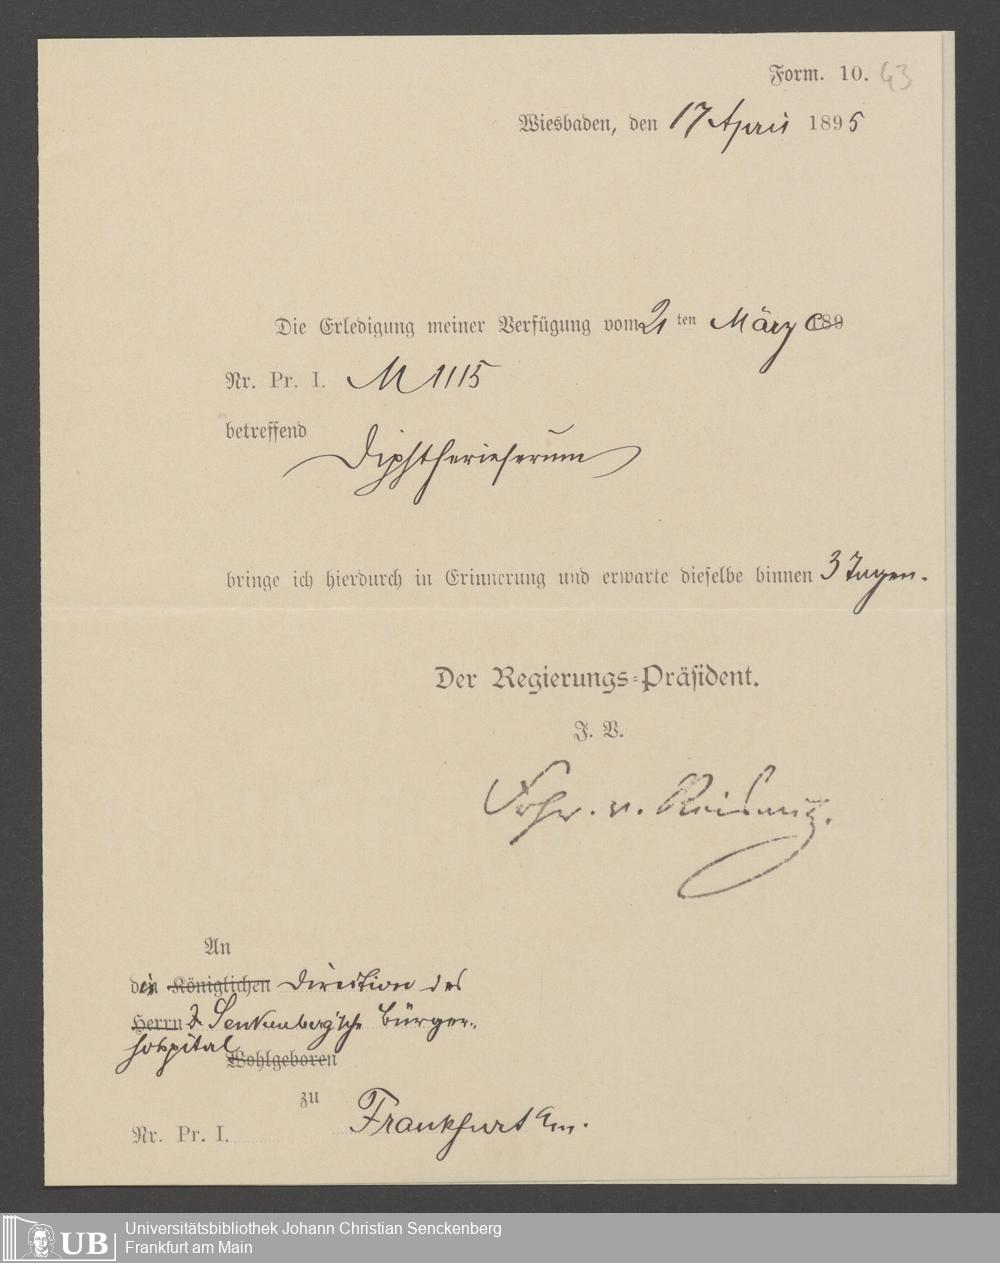 Form. 10. 43
Wiesbaden, den 17 April 1895
Die Erledigung meiner Verfügung vom 21 ten März C 189
Nr. Pr. I. M 1115
betreffend
Diphtherieserum
bringe ich hierdurch in Erinnerung und erwarte dieselbe binnen 3 Tagen.
Der Regierungs-Präsident.
J. V.
Frhr. v. Reiswitz.
An
die Königlichen Direction des
Herrn Senkenberg'sche Bürger-
hospital
Wohlgeboren
zu
Frankfurt a/m.
Nr. Pr. I.
UB
Universitätsbibliothek Johann Christian Senckenberg
Frankfurt am Main